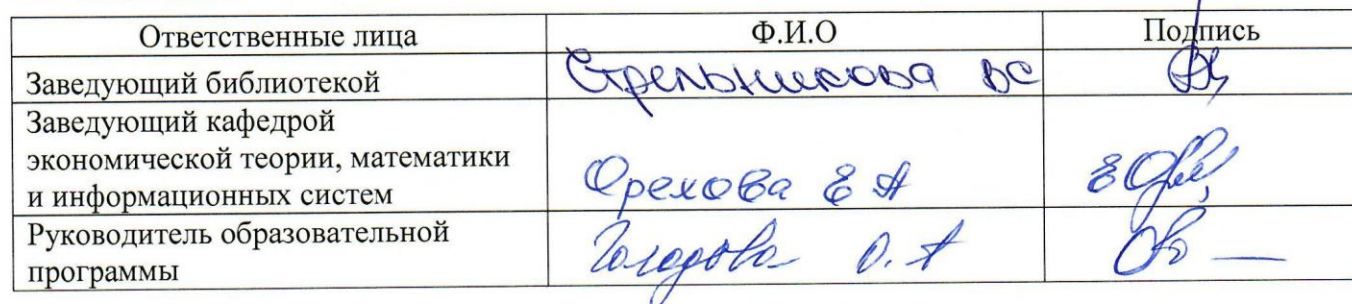 Ответственные лица Ф.И.О Подпись
Заведующий библиотекой Стрельникова ВС
Заведующий кафедрой
экономической теории, математики
и информационных систем Орехова Е А
Руководитель образовательной
программы О. А